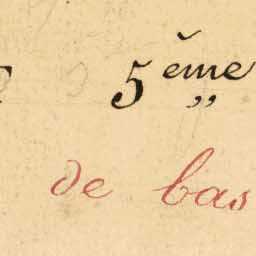 5ème
de bas